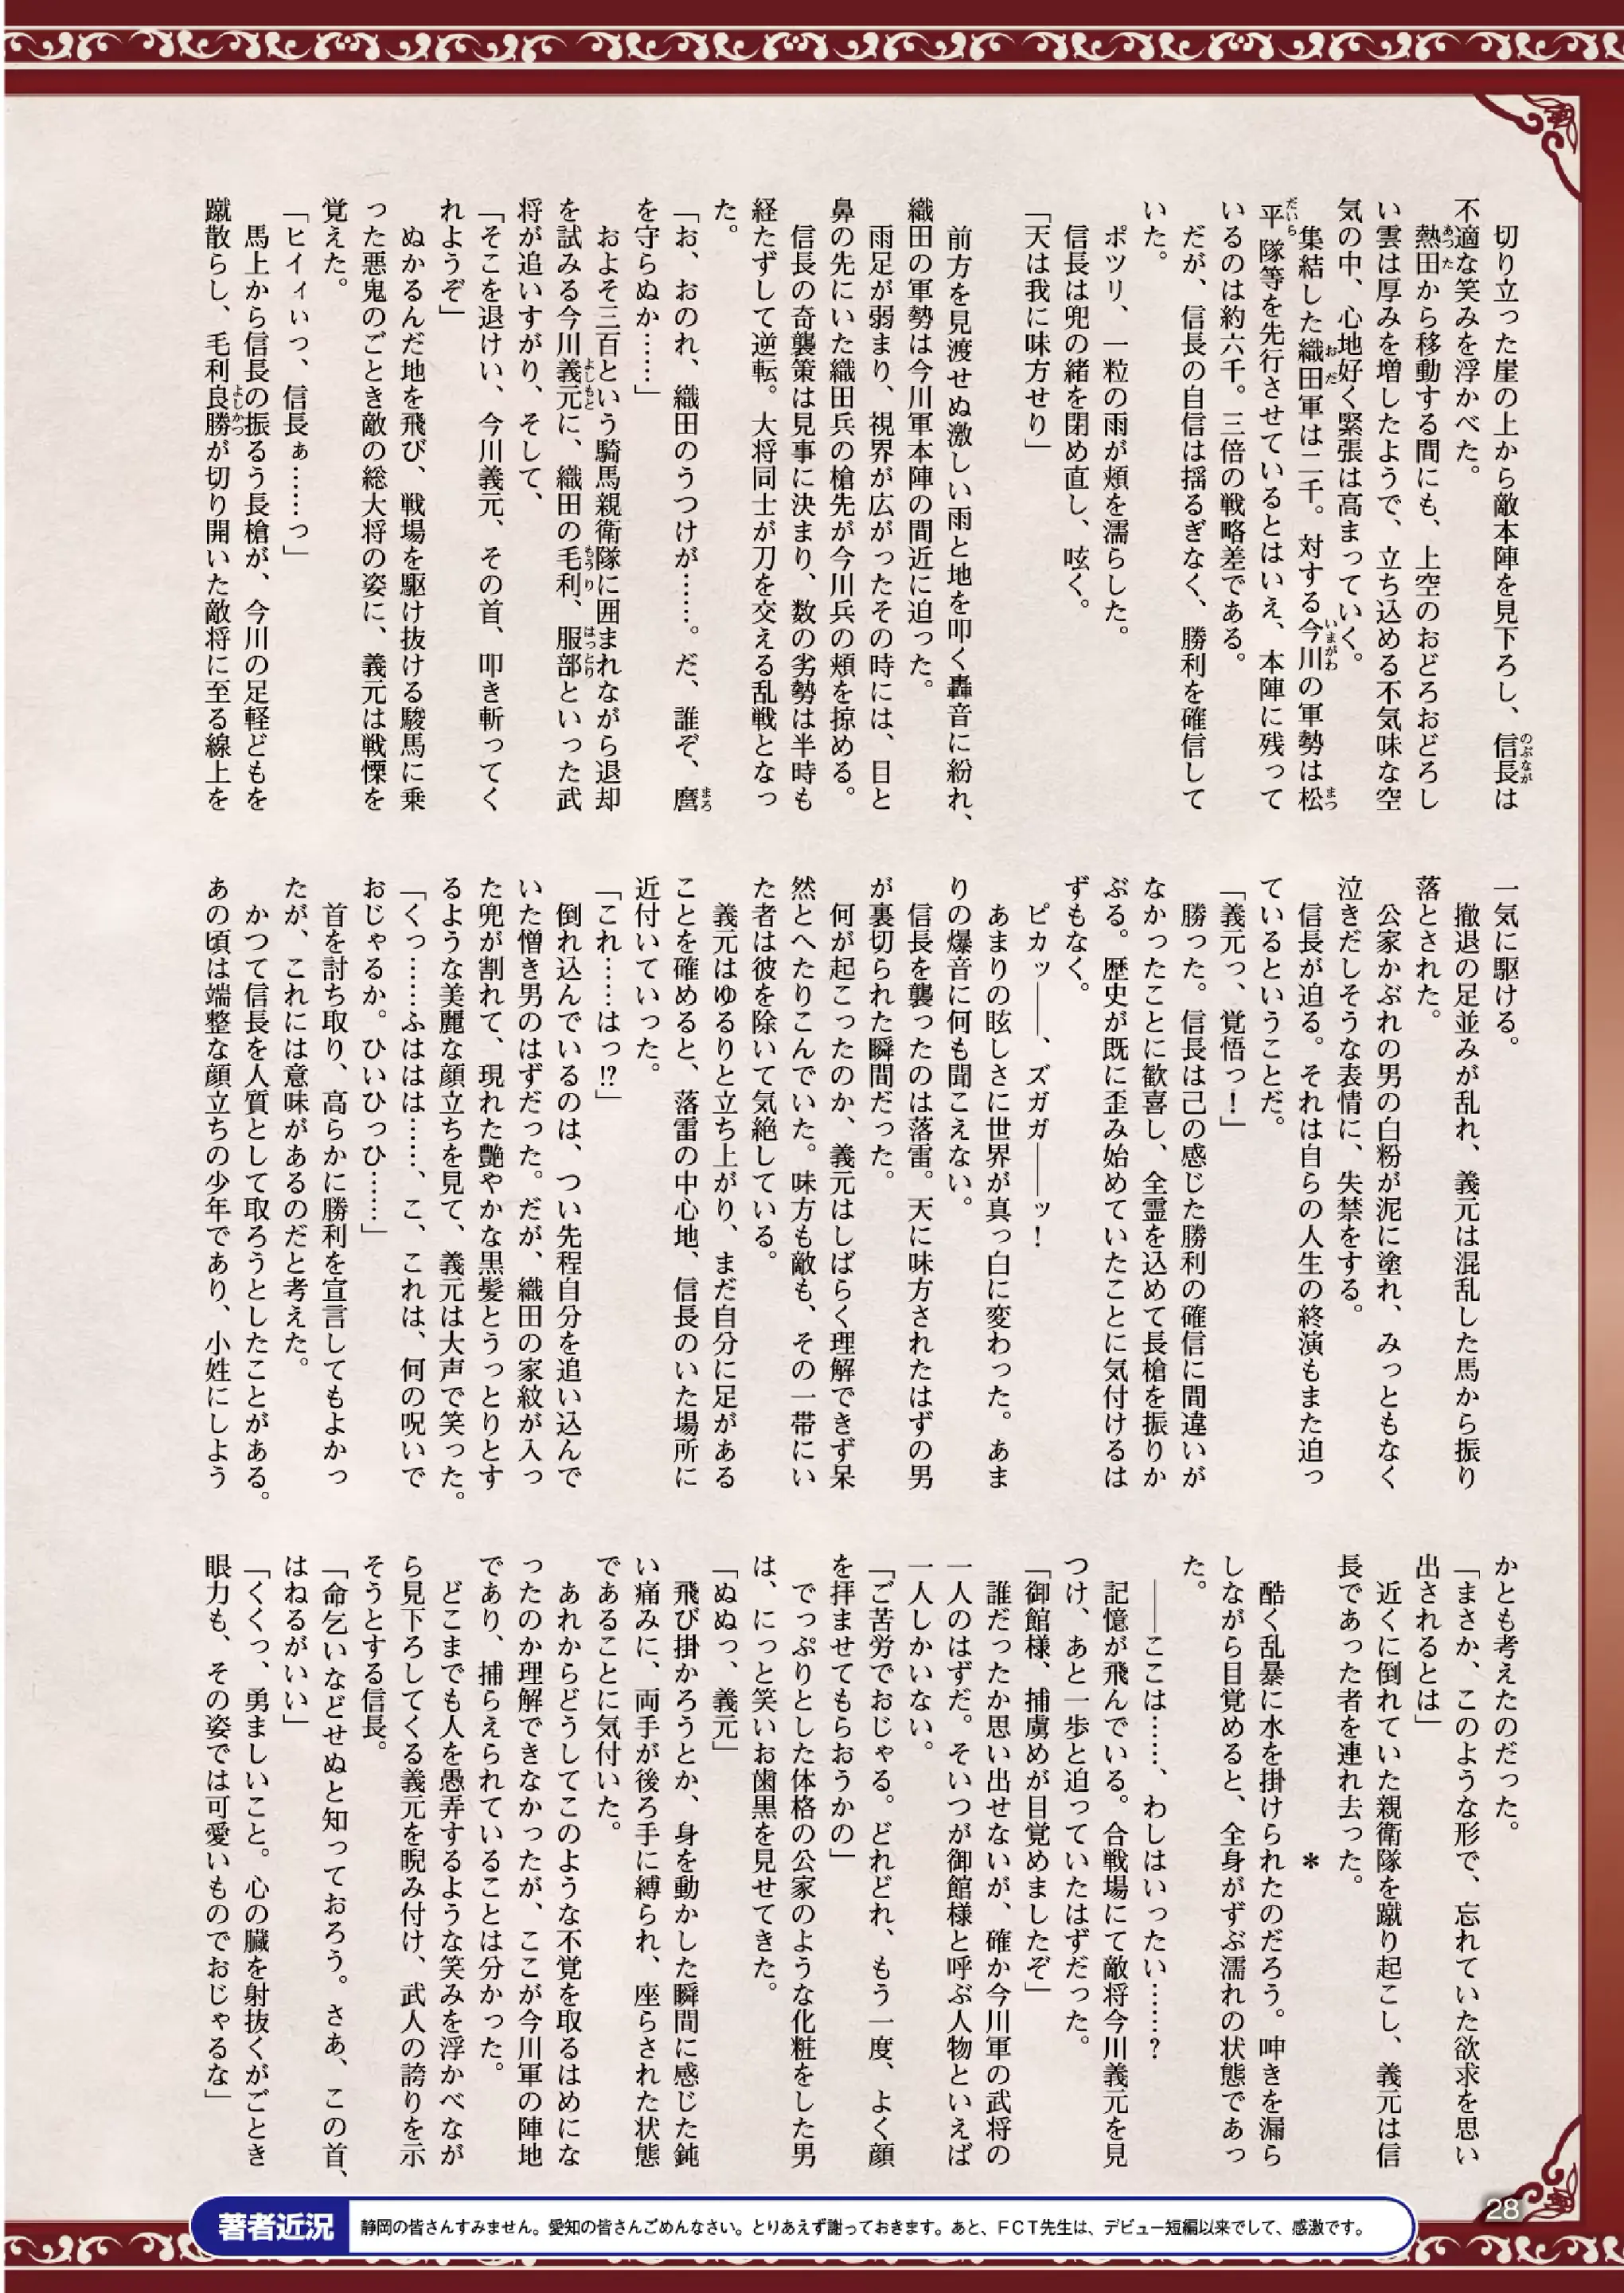 切り立った崖の上から敵本陣を見下ろし、信長は
不適な笑みを浮かべた。
熱田から移動する間にも、上空のおどろおどろし
い雲は厚みを増したようで、立ち込める不気味な空
気の中、心地好く緊張は高まっていく。
集結した織田軍は二千。対する今川の軍勢は松
平隊等を先行させているとはいえ、本陣に残って
いるのは約六千。三倍の戦略差である。
だが、信長の自信は揺るぎなく、勝利を確信して
いた。
ポツリ、一粒の雨が頬を濡らした。
信長は兜の緒を閉め直し、呟く。
「天は我に味方せり」
前方を見渡せぬ激しい雨と地を叩く轟音に紛れ、
織田の軍勢は今川軍本陣の間近に迫った。
雨足が弱まり、視界が広がったその時には、目と
鼻の先にいた織田兵の槍先が今川兵の頬を掠める。
信長の奇襲策は見事に決まり、数の劣勢は半時も
経たずして逆転。大将同士が刀を交える乱戦となっ
た。
「お、おのれ、織田のうつけが……。だ、誰ぞ、麿
を守らぬか……」
およそ三百という騎馬親衛隊に囲まれながら退却
を試みる今川義元に、織田の毛利、服部といった武
将が追いすがり、そして、
「そこを退けい、今川義元、その首、叩き斬ってく
れようぞ」
ぬかるんだ地を飛び、戦場を駆け抜ける駿馬に乗
った悪鬼のごとき敵の総大将の姿に、義元は戦慄を
覚えた。
「ヒイィぃっ、信長ぁ……っ」
馬上から信長の振るう長槍が、今川の足軽どもを
蹴散らし、毛利良勝が切り開いた敵将に至る線上を
一気に駆ける。
撤退の足並みが乱れ、義元は混乱した馬から振り
落とされた。
公家かぶれの男の白粉が泥に塗れ、みっともなく
泣きだしそうな表情に、失禁をする。
信長が迫る。それは自らの人生の終演もまた迫っ
ているということだ。
「義元っ、覚悟っ！」
勝った。信長は己の感じた勝利の確信に間違いが
なかったことに歓喜し、全霊を込めて長槍を振りか
ぶる。歴史が既に歪み始めていたことに気付けるは
ずもなく。
ピカッ――、ズガガガ――ッ！
あまりの眩しさに世界が真っ白に変わった。あま
りの爆音に何も聞こえない。
信長を襲ったのは落雷。天に味方されたはずの男
が裏切られた瞬間だった。
何が起こったのか、義元はしばらく理解できず呆
然とへたりこんでいた。味方も敵も、その一帯にい
た者は彼を除いて気絶している。
義元はゆるりと立ち上がり、まだ自分に足がある
ことを確めると、落雷の中心地、信長のいた場所に
近付いていった。
「これ……はっ⁉」
倒れ込んでいるのは、つい先程自分を追い込んで
いた憎き男のはずだった。だが、織田の家紋が入っ
た兜が割れて、現れた艶やかな黒髪とうっとりとす
るような美麗な顔立ちを見て、義元は大声で笑った。
「くっ……ふははは……、こ、これは、何の呪いで
おじゃるか。ひいひっひ……」
首を討ち取り、高らかに勝利を宣言してもよかっ
たが、これには意味があるのだと考えた。
かつて信長を人質として取ろうとしたことがある。
あの頃は端整な顔立ちの少年であり、小姓にしよう
かとも考えたのだった。
「まさか、このような形で、忘れていた欲求を思い
出されるとは」
近くに倒れていた親衛隊を蹴り起こし、義元は信
長であった者を連れ去った。
＊
酷く乱暴に水を掛けられたのだろう。呻きを漏ら
しながら目覚めると、全身がずぶ濡れの状態であっ
た。
――ここは……、わしはいったい……？
記憶が飛んでいる。合戦場にて敵将今川義元を見
つけ、あと一歩と迫っていたはずだった。
「御館様、捕虜めが目覚めましたぞ」
誰だったか思い出せないが、確か今川軍の武将の
一人のはずだ。そいつが御館様と呼ぶ人物といえば
一人しかいない。
「ご苦労でおじゃる。どれどれ、もう一度、よく顔
を拝ませてもらおうかの」
でっぷりとした体格の公家のような化粧をした男
は、にっと笑いお歯黒を見せてきた。
「ぬぬっ、義元」
飛び掛かろうとか、身を動かした瞬間に感じた鈍
い痛みに、両手が後ろ手に縛られ、座らされた状態
であることに気付いた。
あれからどうしてこのような不覚を取るはめにな
ったのか理解できなかったが、ここが今川軍の陣地
であり、捕らえられていることは分かった。
どこまでも人を愚弄するような笑みを浮かべなが
ら見下ろしてくる義元を睨み付け、武人の誇りを示
そうとする信長。
「命乞いなどせぬと知っておろう。さあ、この首、
はねるがいい」
「くくっ、勇ましいこと。心の臓を射抜くがごとき
眼力も、その姿では可愛いものでおじゃるな」
28
著者近況 静岡の皆さんすみません。愛知の皆さんごめんなさい。とりあえず謝っておきます。あと、ＦＣＴ先生は、デビュー短編以来でして、感激です。